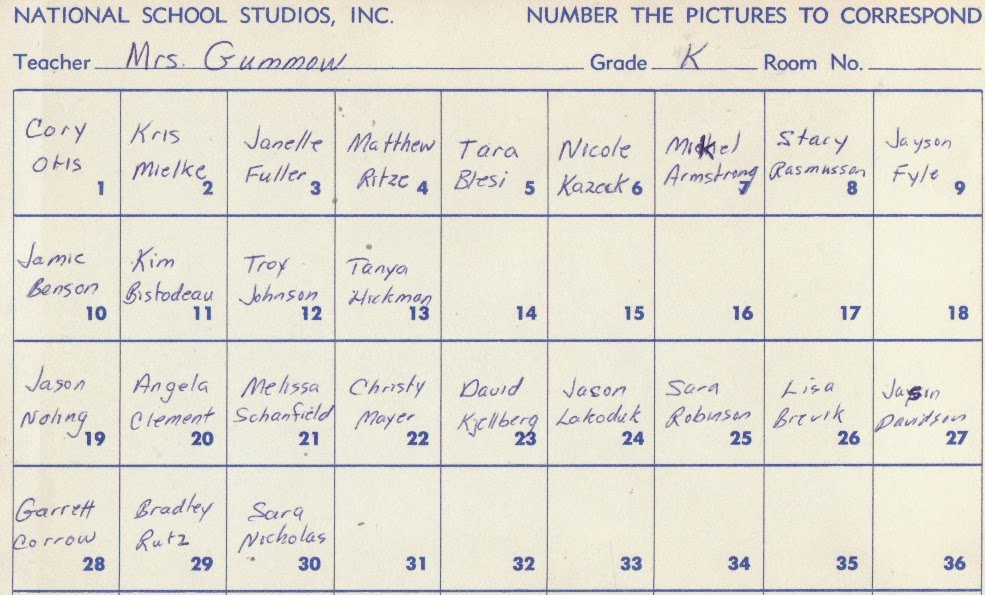 NATIONAL SCHOOL STUDIOS, INC. NUMBER THE PICTURES TO CORRESPOND
Teacher Mrs. Gummow Grade K Room No.
Cory Kris Janelle Matthew Tara Nicole Mickel Stacy Jayson
Otis Mielke Fuller Ritze Blesi Kazeck Armstrong Rasmusson Fyle
1 2 3 4 5 6 7 8 9
Jamie Kim Troy Tanya
Benson Bistodeau Johnson Hickman
10 11 12 13 14 15 16 17 18
Jason Angela Melissa Christy David Jason Sara Lisa Jaysin
Nohng Clement Schanfield Mayer Kjellberg Lakoduk Robinson Brevik Davidson
19 20 21 22 23 24 25 26 27
Garrett Bradley Sara
Corrow Rutz Nicholas
28 29 30 31 32 33 34 35 36